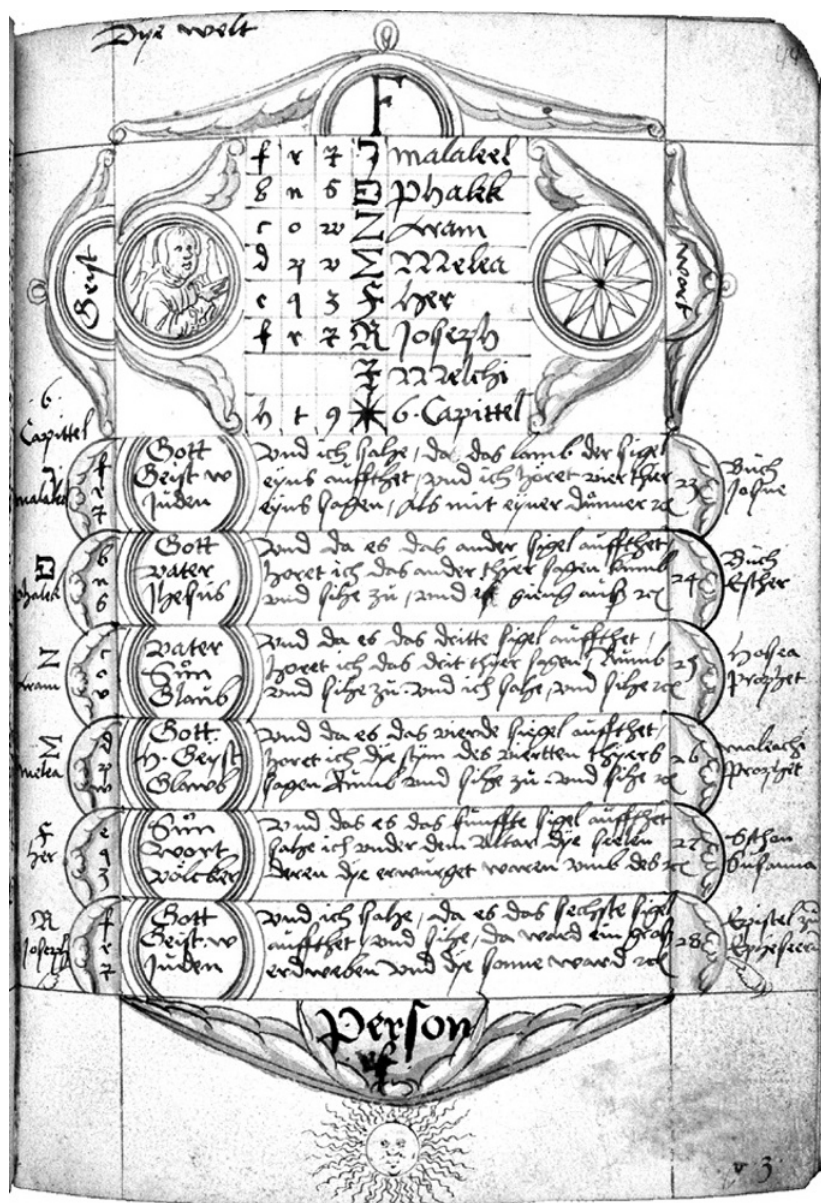 Dye welt
F
f r z J malaleel
b n 6 E phalek
c o w N Aram
d p v M Melea
e q 3 F Her
f r z R Joseph
z Melchi
h t 9 6. Capittel
Geist
Wort
6.
Capittel
malaleel
f
r
z
Gott
Geist w
Juden
Und ich sahe, da das lamb der sigel
eyns auffthet, und ich horet vier thier
eyns sagen, als mit eyner dünner
23
Buch
Josue
phalek
b
n
6
Gott
Vater
Jhesus
Und da es das ander sigel auffthet
horet ich das ander thyer sagen kumb
und sihe zu, und es gieng auß
24
Buch
Esther
N
Aram
c
o
w
Vater
Sün
Glaub
Und da es das dritte sigel auffthet,
horet ich das drit thyer sagen, kumb
und sihe zu. und ich sahe, und sihe
25
Hosea
Prophet
M
melea
d
p
w
Gott
H. Geyst
Glawb
Und da es das vierde siegel auffthet,
horet ich dye stym des viertten thyers
sagen kumb und sihe zu. und sihe
26
maleachi
Prophet
F
Her
e
q
3
Sün
Wort
Völcker
Und das es das funffte sigel auffthet
sahe ich under dem Altar dye seelen
deren dye erwurget waren umb des
27
Susanna
R
Joseph
f
r
z
Gott
Geist. w
Juden
Und ich sahe, da es das sechste sigel
auffthet, und sihe, da ward ein groß
erdweben und dye sonne ward
28
Epistel zu
Epheseern
Person
v 3